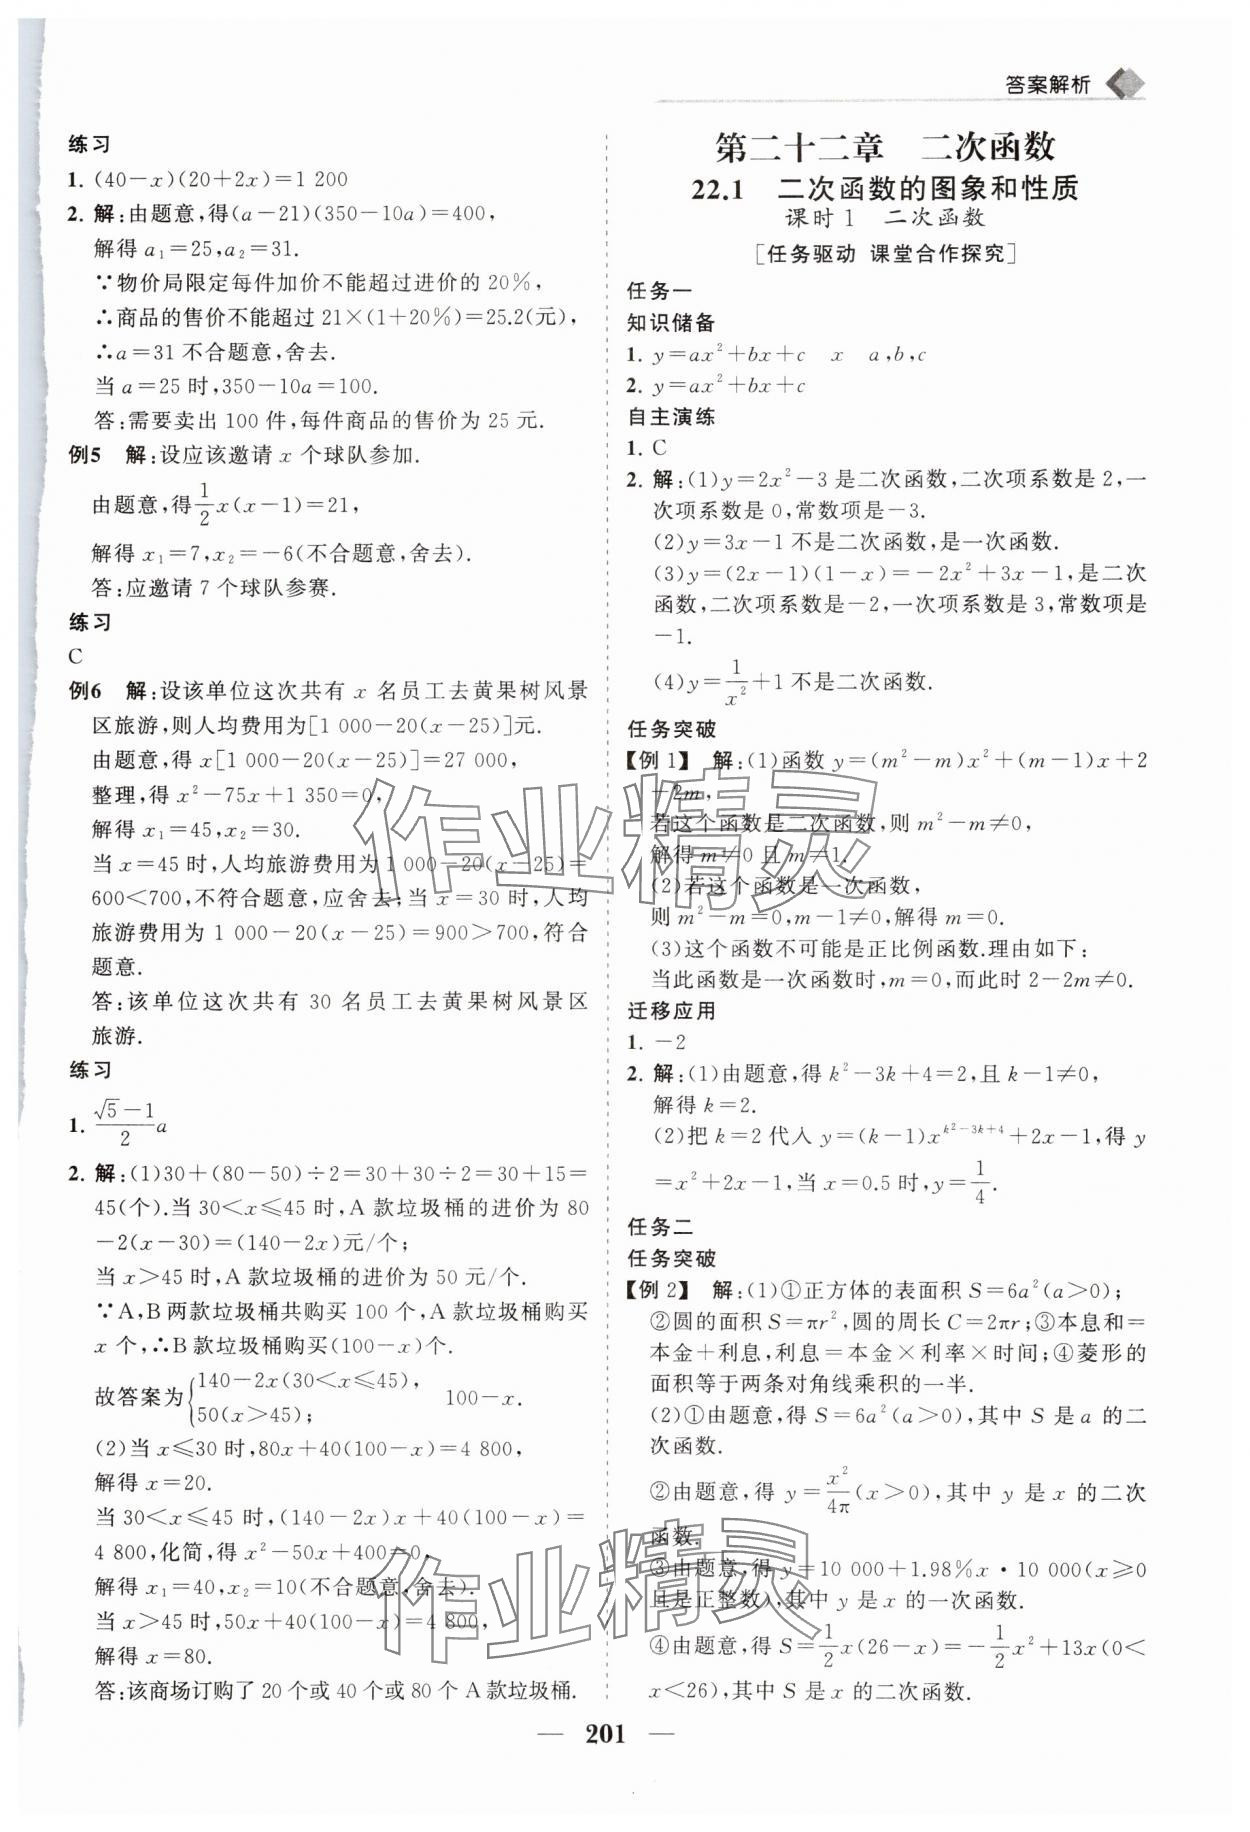 答案解析
练习
1. (40-x)(20+2x)=1 200
2. 解:由题意,得(a-21)(350-10a)=400,
解得 a₁=25,a₂=31.
∵物价局限定每件加价不能超过进价的 20%,
∴商品的售价不能超过 21×(1+20%)=25.2(元),
∴a=31 不合题意,舍去.
当 a=25 时,350-10a=100.
答:需要卖出 100 件,每件商品的售价为 25 元.
例5 解:设应该邀请 x 个球队参加.
由题意,得 1/2 x(x-1)=21,
解得 x₁=7,x₂=-6(不合题意,舍去).
答:应邀请 7 个球队参赛.
练习
C
例6 解:设该单位这次共有 x 名员工去黄果树风景
区旅游,则人均费用为[1 000-20(x-25)]元.
由题意,得 x[1 000-20(x-25)]=27 000,
整理,得 x²-75x+1 350=0,
解得 x₁=45,x₂=30.
当 x=45 时,人均旅游费用为 1 000-20(x-25)=
600<700,不符合题意,应舍去;当 x=30 时,人均
旅游费用为 1 000-20(x-25)=900>700,符合
题意.
答:该单位这次共有 30 名员工去黄果树风景区
旅游.
练习
1. (√5-1)/2 a
2. 解:(1)30+(80-50)÷2=30+30÷2=30+15=
45(个).当 30<x≤45 时,A 款垃圾桶的进价为 80
-2(x-30)=(140-2x)元/个;
当 x>45 时,A 款垃圾桶的进价为 50 元/个.
∵A,B 两款垃圾桶共购买 100 个,A 款垃圾桶购买
x 个,∴B 款垃圾桶购买(100-x)个.
故答案为{140-2x(30<x≤45),
50(x>45); 100-x.
(2)当 x≤30 时,80x+40(100-x)=4 800,
解得 x=20.
当 30<x≤45 时,(140-2x)x+40(100-x)=
4 800,化简,得 x²-50x+400=0,
解得 x₁=40,x₂=10(不合题意,舍去).
当 x>45 时,50x+40(100-x)=4 800,
解得 x=80.
答:该商场订购了 20 个或 40 个或 80 个 A 款垃圾桶.
第二十二章 二次函数
22.1 二次函数的图象和性质
课时 1 二次函数
[任务驱动 课堂合作探究]
任务一
知识储备
1. y=ax²+bx+c x a,b,c
2. y=ax²+bx+c
自主演练
1. C
2. 解:(1)y=2x²-3 是二次函数,二次项系数是 2,一
次项系数是 0,常数项是-3.
(2)y=3x-1 不是二次函数,是一次函数.
(3)y=(2x-1)(1-x)=-2x²+3x-1,是二次
函数,二次项系数是-2,一次项系数是 3,常数项是
-1.
(4)y=1/x²+1 不是二次函数.
任务突破
【例 1】 解:(1)函数 y=(m²-m)x²+(m-1)x+2
-2m,
若这个函数是二次函数,则 m²-m≠0,
解得 m≠0 且 m≠1.
(2)若这个函数是一次函数,
则 m²-m=0,m-1≠0,解得 m=0.
(3)这个函数不可能是正比例函数.理由如下:
当此函数是一次函数时,m=0,而此时 2-2m≠0.
迁移应用
1. -2
2. 解:(1)由题意,得 k²-3k+4=2,且 k-1≠0,
解得 k=2.
(2)把 k=2 代入 y=(k-1)x^(k²-3k+4)+2x-1,得 y
=x²+2x-1,当 x=0.5 时,y=1/4.
任务二
任务突破
【例 2】 解:(1)①正方体的表面积 S=6a²(a>0);
②圆的面积 S=πr²,圆的周长 C=2πr;③本息和=
本金+利息,利息=本金×利率×时间;④菱形的
面积等于两条对角线乘积的一半.
(2)①由题意,得 S=6a²(a>0),其中 S 是 a 的二
次函数.
②由题意,得 y=x²/4π(x>0),其中 y 是 x 的二次
函数.
③由题意,得 y=10 000+1.98%x·10 000(x≥0
且是正整数),其中 y 是 x 的一次函数.
④由题意,得 S=1/2 x(26-x)=-1/2 x²+13x(0<
x<26),其中 S 是 x 的二次函数.
— 201 —
作业精灵
作业精灵